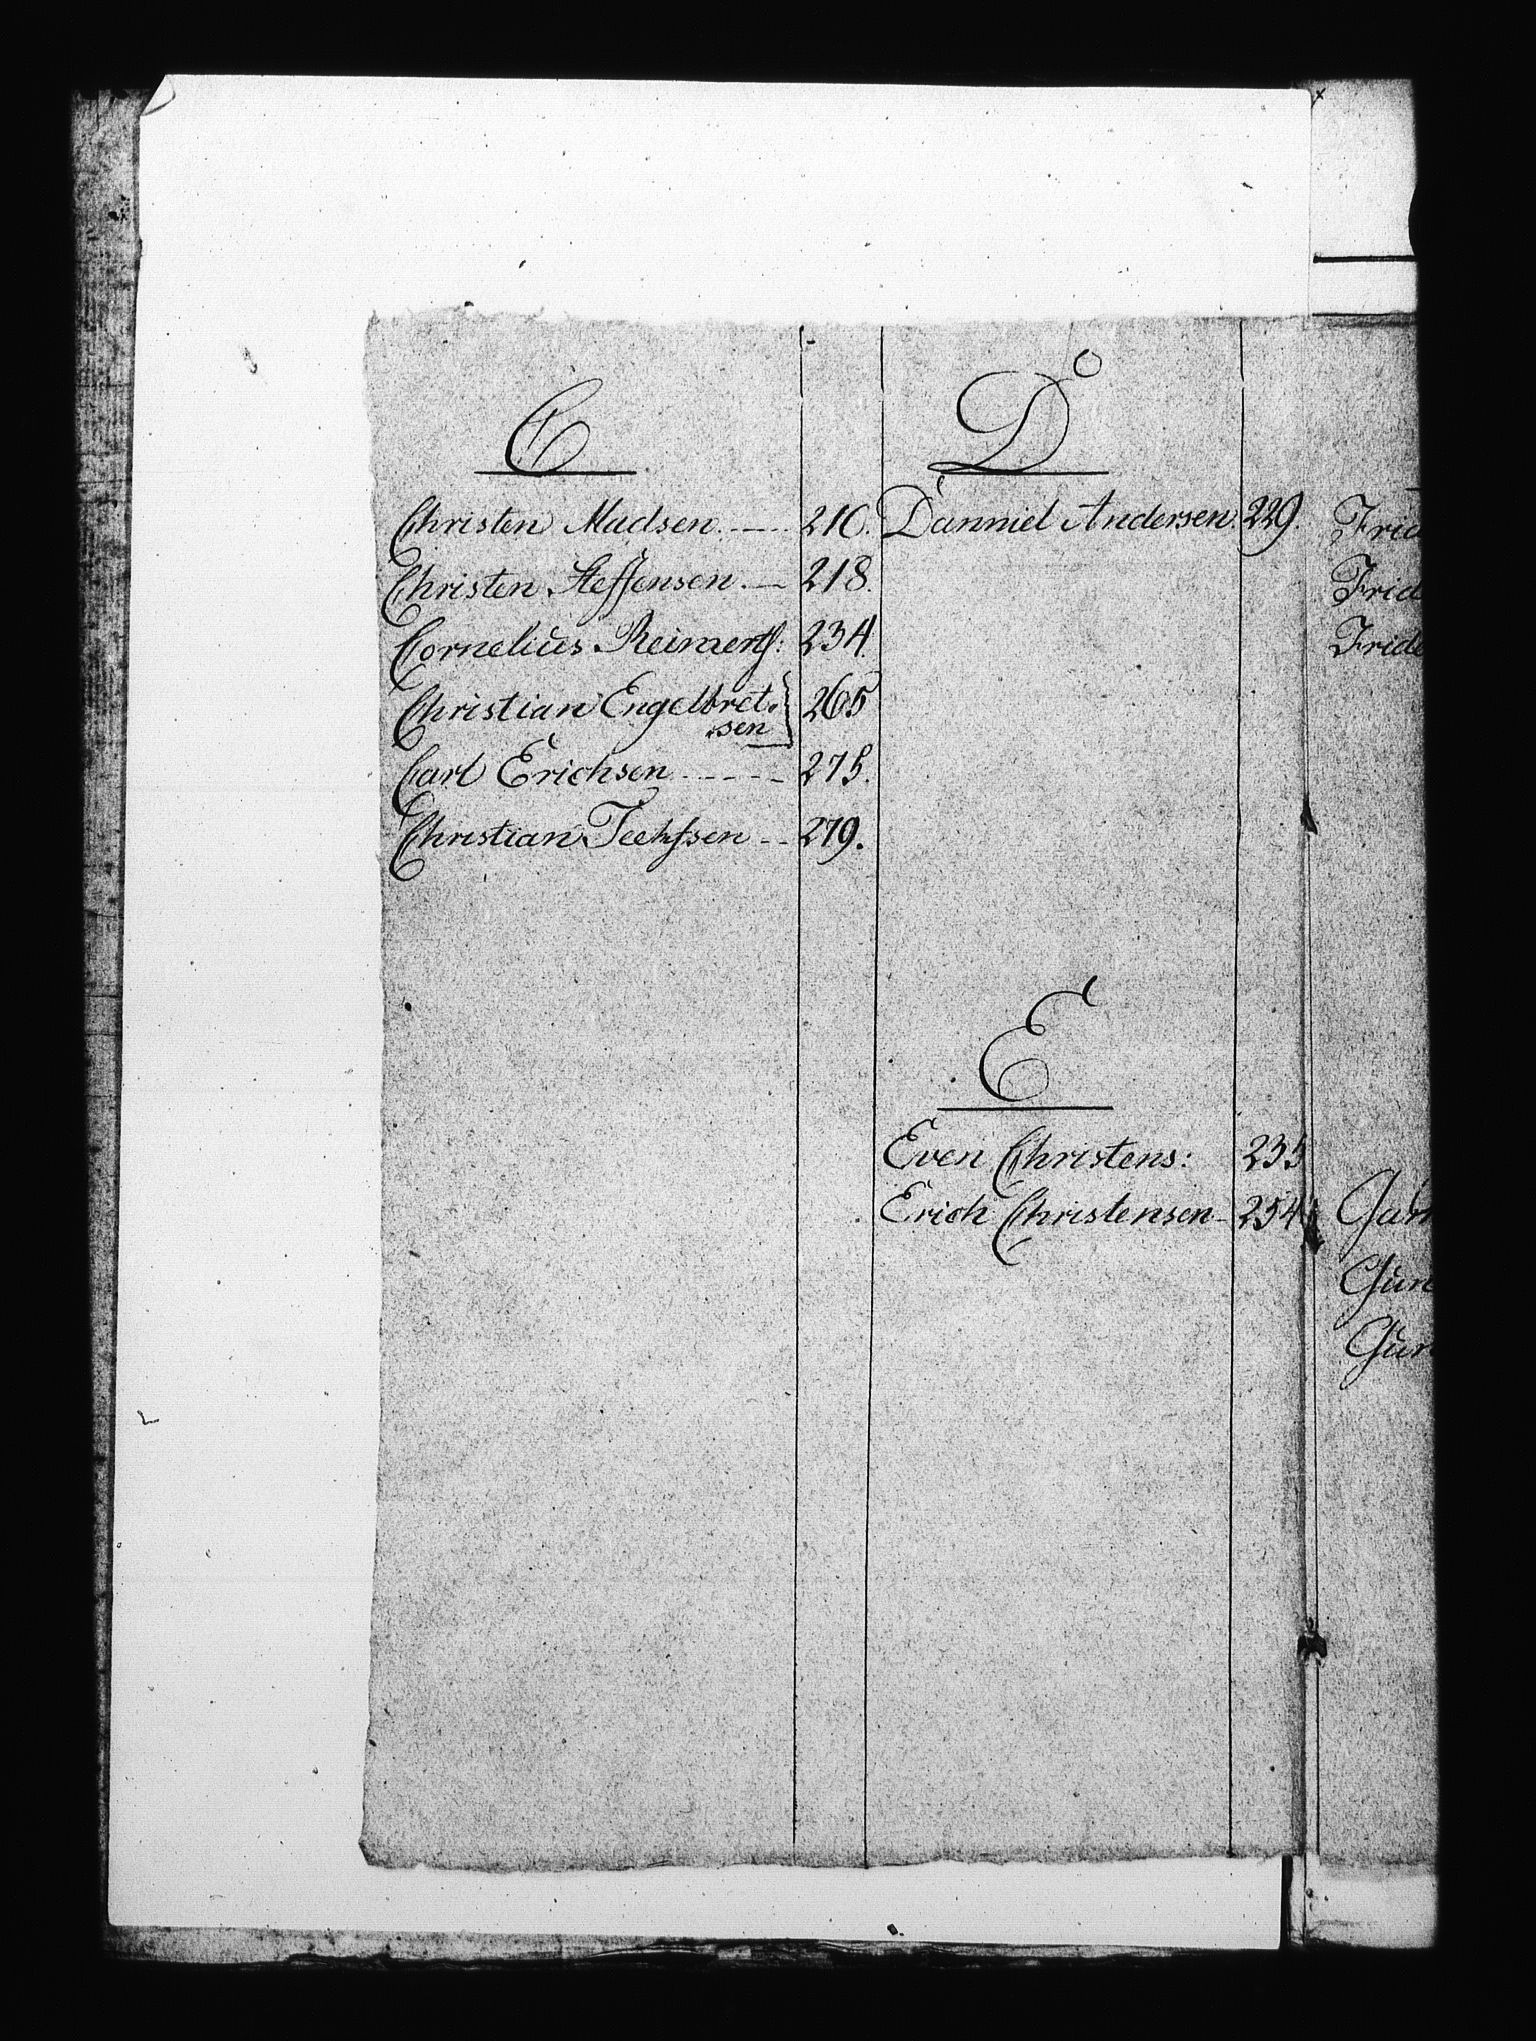 C
Christen Madsen. — 210.
Christen Steffensen. — 218.
Cornelius Reimerts: 234.
Christian Engelbret- 265
sen
Carl Erichsen ------ 275.
Christian -- 279.
D
Danniel Andersen. 229.
E
Even Christens: 235
Erich Christensen - 254
Frid
Frid
Fride
Gun
Gun